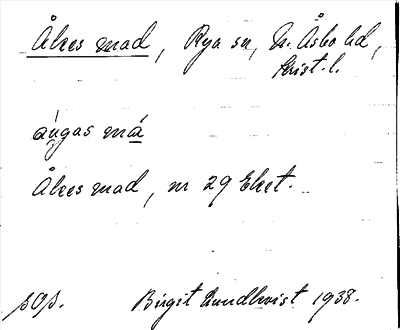 Åkes mad, Rya sn, N. Åsbo hd,
Krist. l.
Åkes mad, nr 29 Eket.
sOs. Birgit Lundkvist 1938.